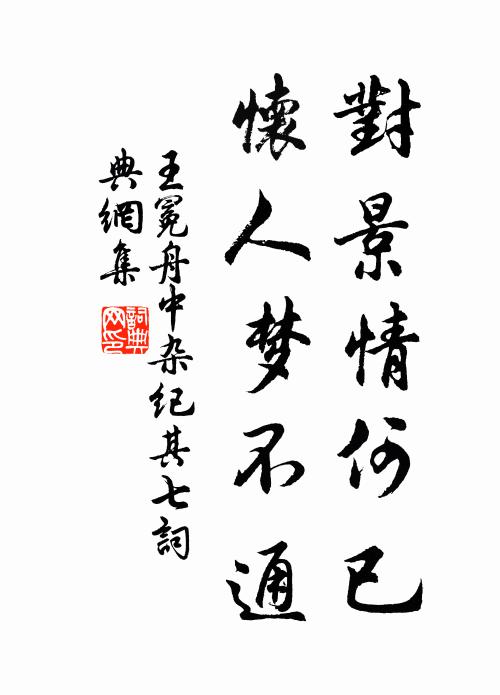 對景情何已
懷人梦不通
王冕舟中杂纪其七詞
典網集
詞典
网印